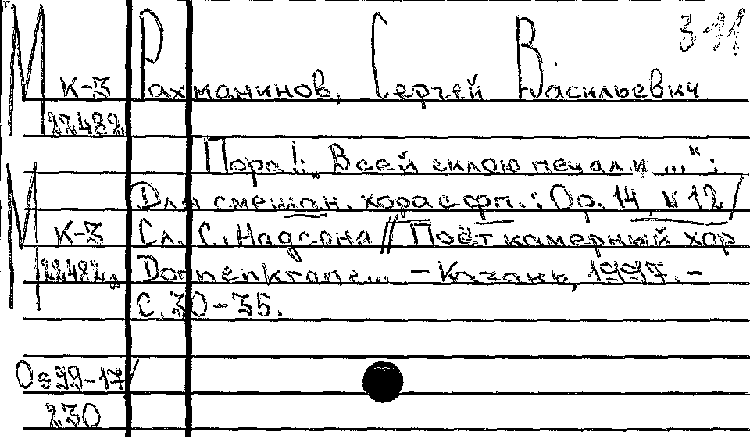 3-11
М Рахманинов, Сергей Васильевич
К-3
22482
Пора!: "Всей силою печали ...":
М Для смешан. хора с фп.: Ор. 14, N 12/
К-3 Сл. С. Надсона // Поёт камерный хор
22482а Domnenkrone... - Казань, 1997. -
С. 30-35.
Оэ99-17/
230